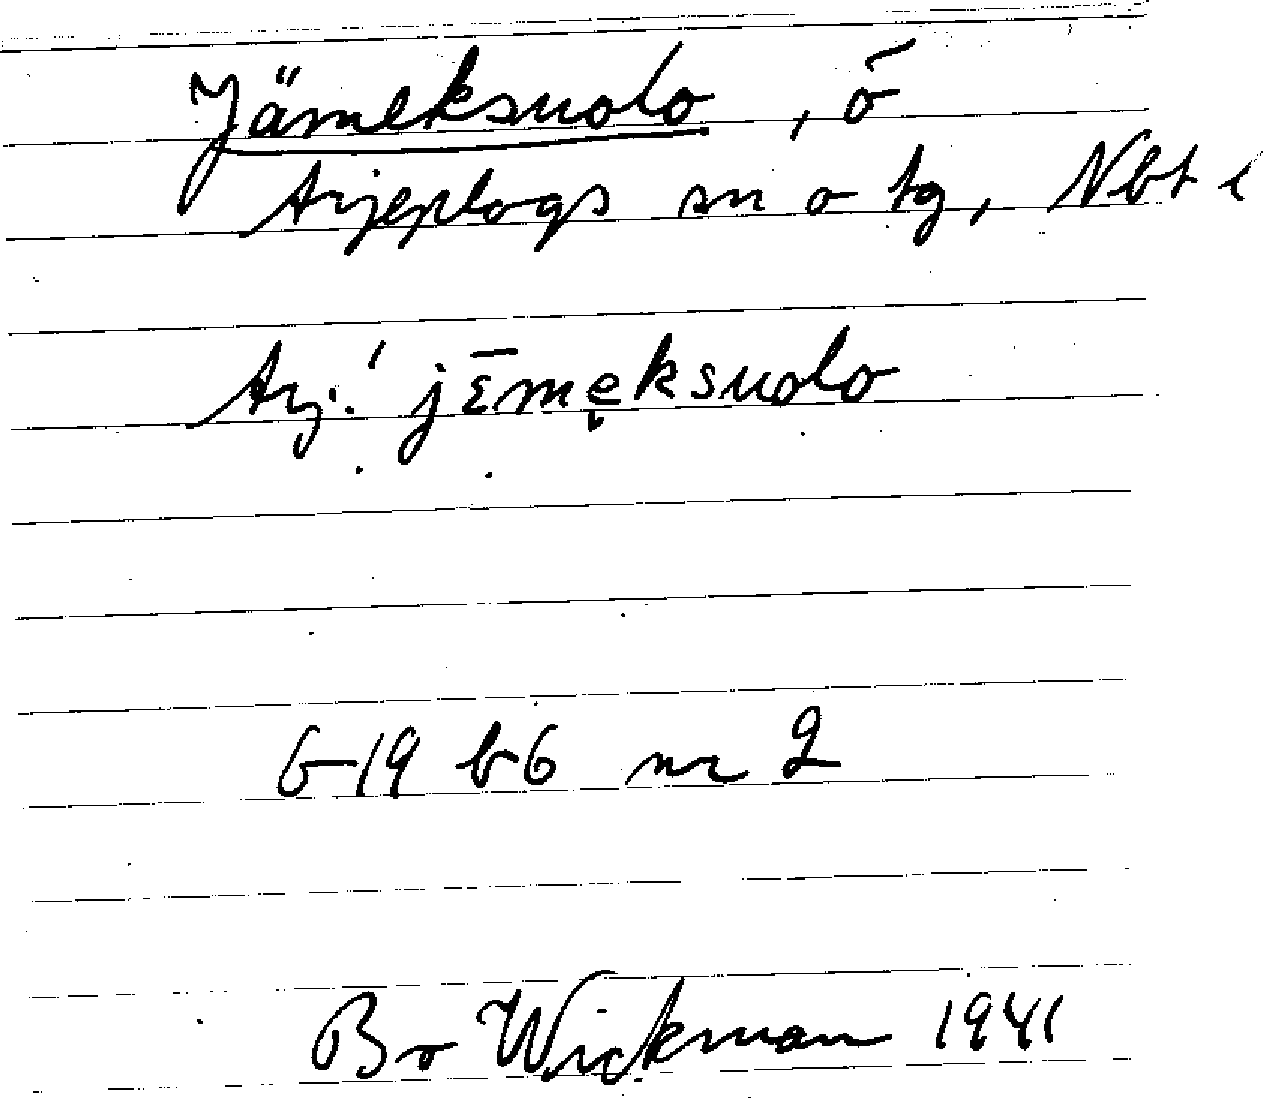 Jämeksuolo, ö
Arjeplogs sn o tg, Nbt l
Arj.: jɛ̄męksuolo
G 19 b 6 nr 2
Bo Wickman 1941